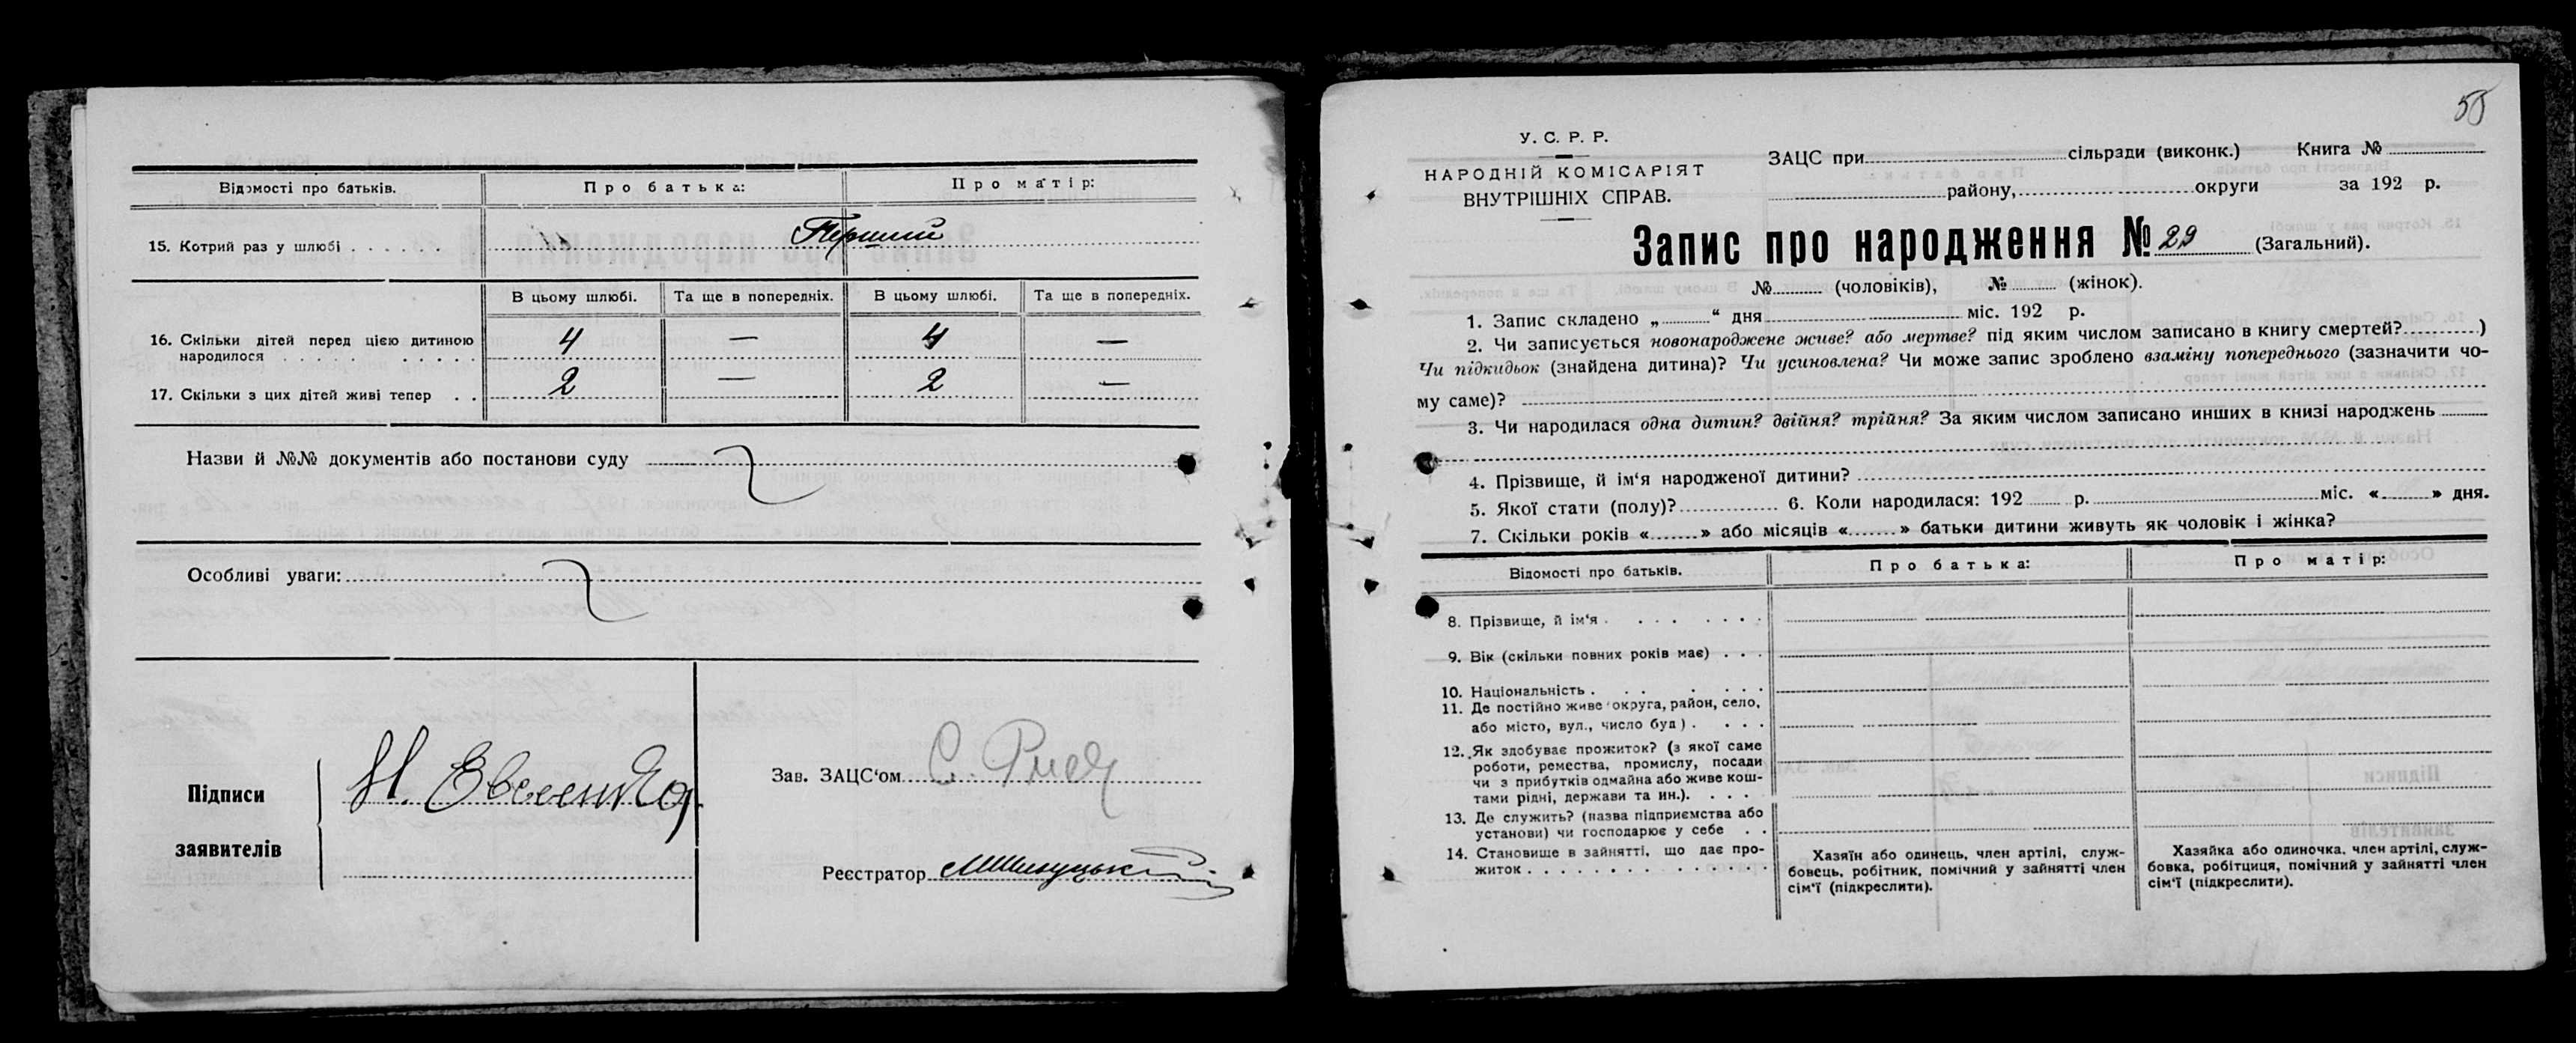 Відомості про батьків. Про батька: Про матір:
15. Котрий раз у шлюбі . . . . . . Перший
В цьому шлюбі. Та ще в попередніх. В цьому шлюбі. Та ще в попередніх.
16. Скільки дітей перед цією дитиною
народилося . . . . . . . . . . 4 — 4 —
17. Скільки з цих дітей живі тепер . . 2 — 2 —
Назви й №№ документів або постанови суду
Особливі уваги:
Підписи
заявителів
Н.
Зав. ЗАЦС‘ом С.
Реєстратор
55
У. С. Р. Р.
НАРОДНІЙ КОМІСАРІЯТ
ВНУТРІШНІХ СПРАВ.
ЗАЦС при сільради (виконк.) Книга №
району, округи за 192 р.
Запис про народження № 29 (Загальний).
№ (чоловіків), № (жінок).
1. Запис складено „ “ дня міс. 192 р.
2. Чи записується новонароджене живе? або мертве? під яким числом записано в книгу смертей? )
Чи підкидьок (знайдена дитина)? Чи усиновлена? Чи може запис зроблено взаміну попереднього (зазначити чо-
му саме)?
3. Чи народилася одна дитин? двійня? трійня? За яким числом записано инших в книзі народжень
4. Прізвище, й ім‘я народженої дитини?
5. Якої стати (полу)? 6. Коли народилася: 192 р. міс. « » дня.
7. Скільки років « » або місяців « » батьки дитини живуть як чоловік і жінка?
Відомості про батьків. Про батька: Про матір:
8. Прізвище, й ім‘я . . . . . .
9. Вік (скільки повних років має) . . .
10. Національність . . . . . . .
11. Де постійно живе (округа, район, село,
або місто, вул., число буд) . . . .
12. Як здобуває прожиток? (з якої саме
роботи, ремества, промислу, посади
чи з прибутків одмайна або живе кош-
тами рідні, держави та ин.). . . . .
13. Де служить? (назва підприємства або
установи) чи господарює у себе . .
14. Становище в зайнятті, що дає про-
житок . . . . . . . . . . . . . .
Хазяїн або одинець, член артілі, служ-
бовець, робітник, помічний у зайнятті член
сім‘ї (підкреслити).
Хазяйка або одиночка, член артілі, служ-
бовка, робітциця, помічний у зайнятті член
сім‘ї (підкреслити).